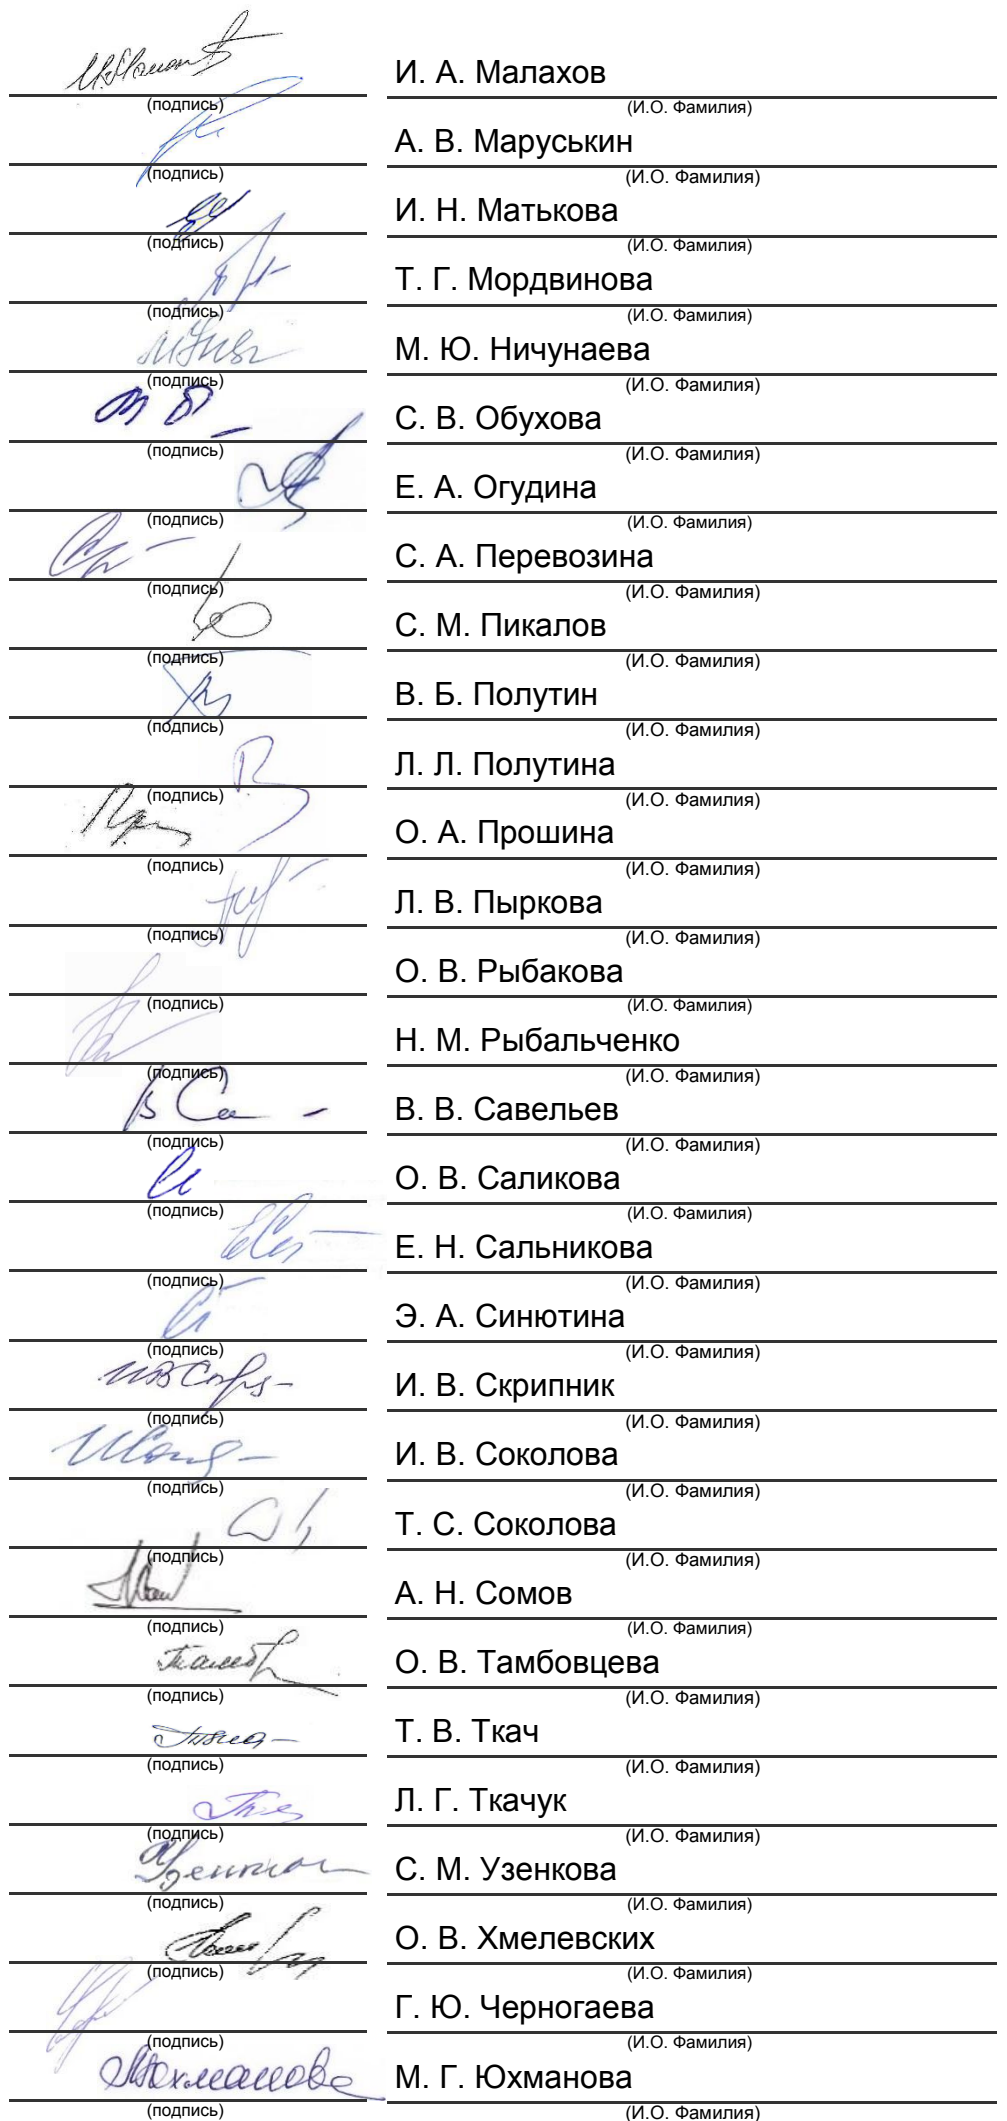 И. А. Малахов
(подпись) (И.О. Фамилия)
А. В. Маруськин
(подпись) (И.О. Фамилия)
И. Н. Матькова
(подпись) (И.О. Фамилия)
Т. Г. Мордвинова
(подпись) (И.О. Фамилия)
М. Ю. Ничунаева
(подпись) (И.О. Фамилия)
С. В. Обухова
(подпись) (И.О. Фамилия)
Е. А. Огудина
(подпись) (И.О. Фамилия)
С. А. Перевозина
(подпись) (И.О. Фамилия)
С. М. Пикалов
(подпись) (И.О. Фамилия)
В. Б. Полутин
(подпись) (И.О. Фамилия)
Л. Л. Полутина
(подпись) (И.О. Фамилия)
О. А. Прошина
(подпись) (И.О. Фамилия)
Л. В. Пыркова
(подпись) (И.О. Фамилия)
О. В. Рыбакова
(подпись) (И.О. Фамилия)
Н. М. Рыбальченко
(подпись) (И.О. Фамилия)
В. В. Савельев
(подпись) (И.О. Фамилия)
О. В. Саликова
(подпись) (И.О. Фамилия)
Е. Н. Сальникова
(подпись) (И.О. Фамилия)
Э. А. Синютина
(подпись) (И.О. Фамилия)
И. В. Скрипник
(подпись) (И.О. Фамилия)
И. В. Соколова
(подпись) (И.О. Фамилия)
Т. С. Соколова
(подпись) (И.О. Фамилия)
А. Н. Сомов
(подпись) (И.О. Фамилия)
О. В. Тамбовцева
(подпись) (И.О. Фамилия)
Т. В. Ткач
(подпись) (И.О. Фамилия)
Л. Г. Ткачук
(подпись) (И.О. Фамилия)
С. М. Узенкова
(подпись) (И.О. Фамилия)
О. В. Хмелевских
(подпись) (И.О. Фамилия)
Г. Ю. Черногаева
(подпись) (И.О. Фамилия)
М. Г. Юхманова
(подпись) (И.О. Фамилия)